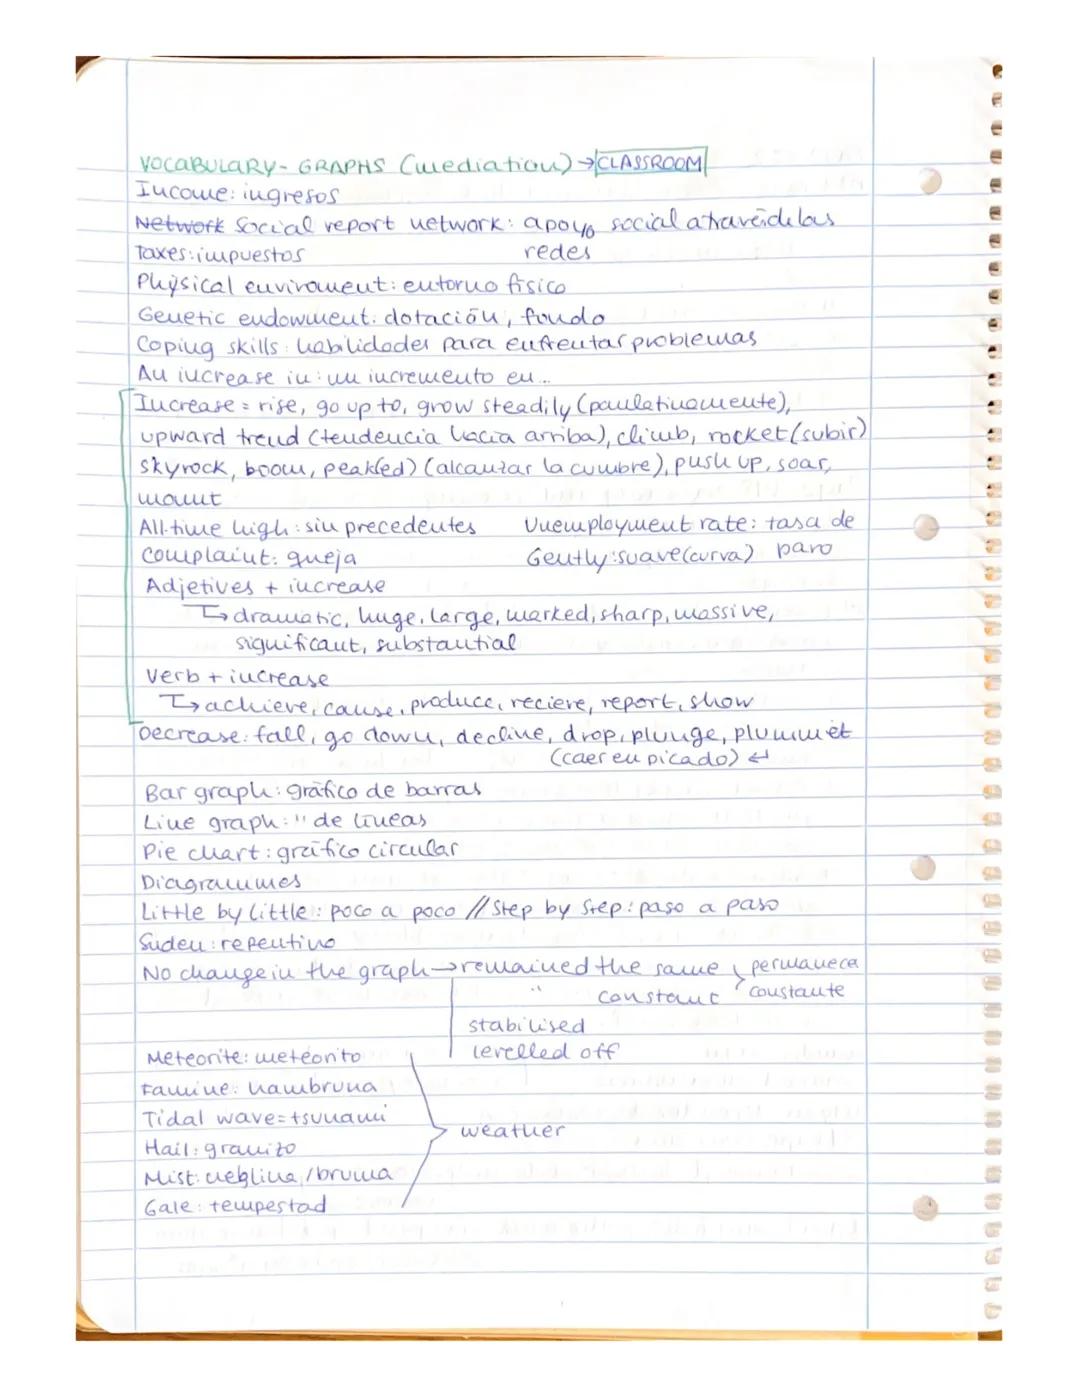 VOCABULARY- GRAPHS (mediation) → CLASSROOM
Income: ingresos
Network Social report network: apoyo social através de las
redes
Taxes: impuestos
Physical enviroment: entorno físico
Genetic endowment: dotación, fondo
Coping skills: habilidades para enfrentar problemas
An increase in: un incremento en...
Increase = rise, go up to, grow steadily (paulatinamente),
upward trend (tendencia hacia arriba), climb, rocket (subir)
skyrock, boom, peak(ed) (alcanzar la cumbre), push up, soar,
mount
All-time high: sin precedentes Unemployment rate: tasa de
paro
Complaint: queja Gently: suave (curva)
Adjetives + increase
↳ dramatic, huge, large, marked, sharp, massive,
significant, substantial
Verb + increase
↳ achieve, cause, produce, recieve, report, show
Decrease: fall, go down, decline, drop, plunge, plummet
(caer en picado) ↵
Bar graph: gráfico de barras
Line graph: " de líneas
Pie chart: gráfico circular
Diagrammes
Little by little: poco a poco // Step by step: paso a paso
Suden: repentino
No change in the graph → remained the same permaneca
" constant constante
stabilised
levelled off
Meteorite: meteorito
Famine: hambruna
Tidal wave = tsunami
weather
Hail: granizo
Mist: neblina / bruma
Gale: tempestad